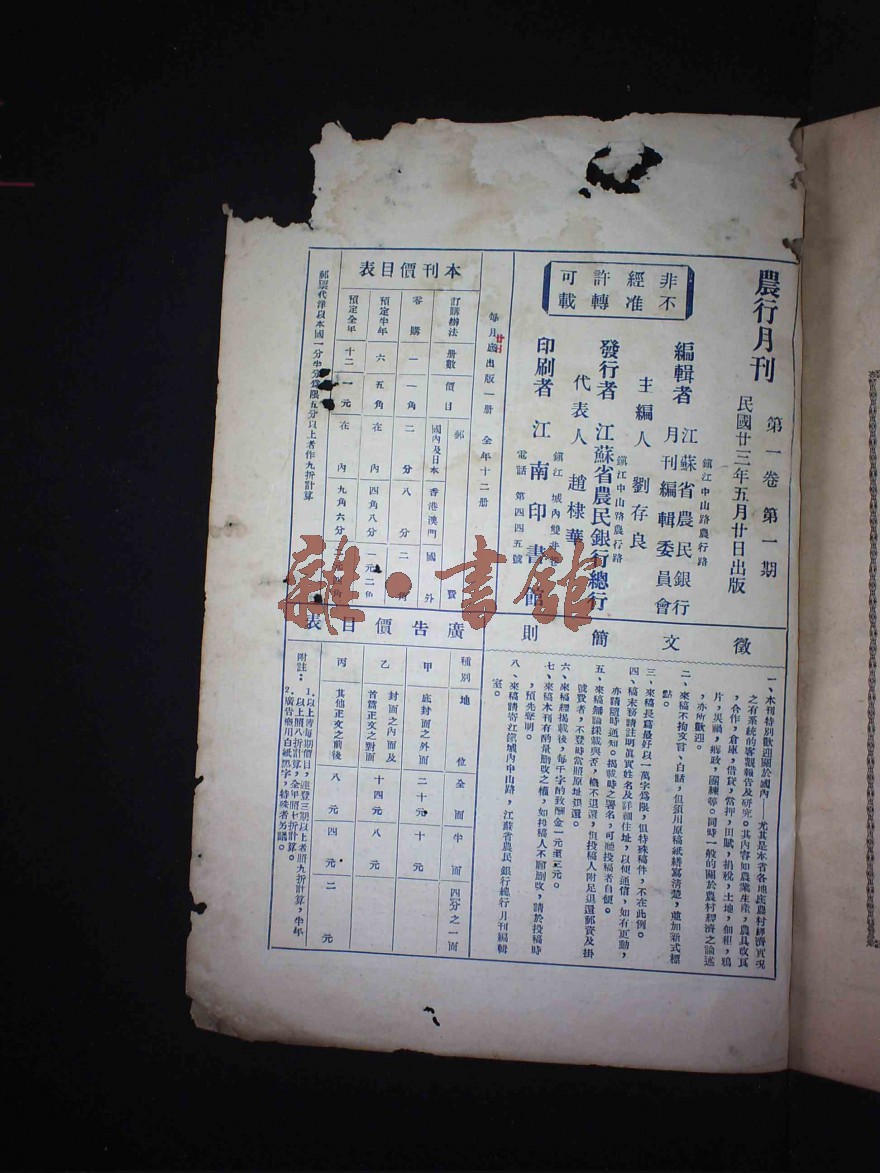 農行月刊 第一卷 第一期
民國廿三年五月廿日出版
鎮江中山路農行路
編輯者 江蘇省農民銀行
月刊編輯委員會
主編人 劉存良
鎮江中山路農行路
發行者 江蘇省農民銀行總行
代表人 趙棣華
鎮江 城內雙井
印刷者 江南印書館
電話 第四四五號
非經許可
不准轉載
每月廿日出版一册 全年十二册
本刊價目表
訂購辦法 册數 價目 郵費
國內及日本 香港澳門 國外
零購 一 一角 二分 八分 二角
預定半年 六 五角 在內 四角八分 一元二角
預定全年 十二 一元 在內 九角六分 二元四角
郵票代洋以本國一分半分爲限五分以上者作九折計算
徵文簡則
一、本刊特別歡迎關於國內 尤其是本省各地底農村經濟實况
之有系統的客觀報告及研究。其內容如農業生產，農具改良
，合作，倉庫，借貸，當押，田賦，捐稅，土地，佃租，鴉
片，災禍，鄉政，團練等。同時一般的關於農村經濟之論述
，亦所歡迎。
二、來稿不拘文言、白話，但須用原稿紙繕寫清楚，並加新式標
點。
三、來稿長篇最好以一萬字爲限，但特殊稿件，不在此例。
四、稿末務請註明眞實姓名及詳細住址，以便通信，如有更動，
亦請隨時通知。揭載時之署名，可聽投稿者自便。
五、來稿無論採載與否，概不退還，但投稿人附足退還郵資及掛
號費者，不登時當照原址退還。
六、來稿經揭載後，每千字酌致酬金一元至三元。
七、來稿本刊有酌量删改之權，如投稿人不願删改，請於投稿時
，預先聲明。
八、來稿請寄江鎮城內中山路，江蘇省農民銀行總行月刊編輯
室。
廣告價目表
種別 地位 全面 半面 四分之一面
甲 底封面之外面 二十元 十元
乙 封面之內面及首篇正文之對面 十四元 八元
丙 其他正文之前後 八元 四元 二元
附註：
1. 以上者每期價目，連登三期以上者照九折計算，半年
以上照八折計算，全年照七折計算。
2. 廣告概用白紙黑字，特殊者另議。
雜·書館